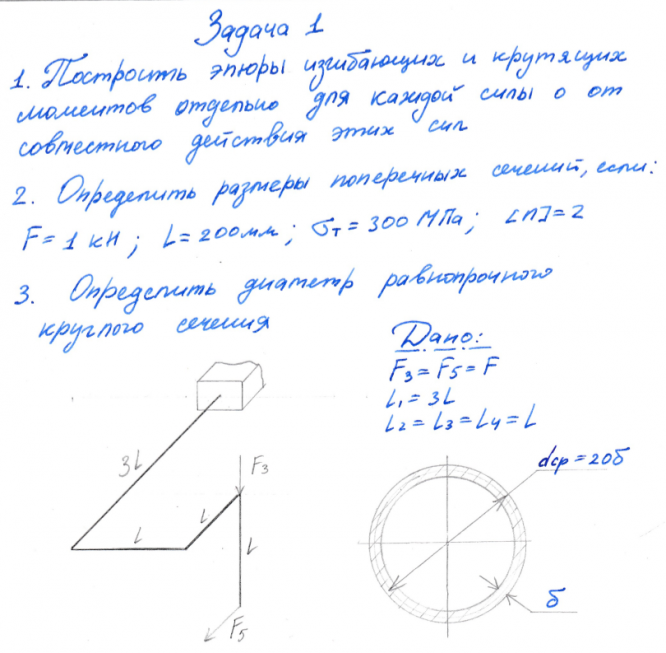 Задача 1
1. Построить эпюры изгибающих и крутящих
моментов отдельно для каждой силы о от
совместного действия этих сил
2. Определить размеры поперечных сечений, если:
F = 1 кН; L = 200мм; σт = 300 МПа; [n] = 2
3. Определить диаметр равнопрочного
круглого сечения
Дано:
F3 = F5 = F
L1 = 3L
L2 = L3 = L4 = L
3L
F3
L
L
L
F5
dср = 20δ
δ